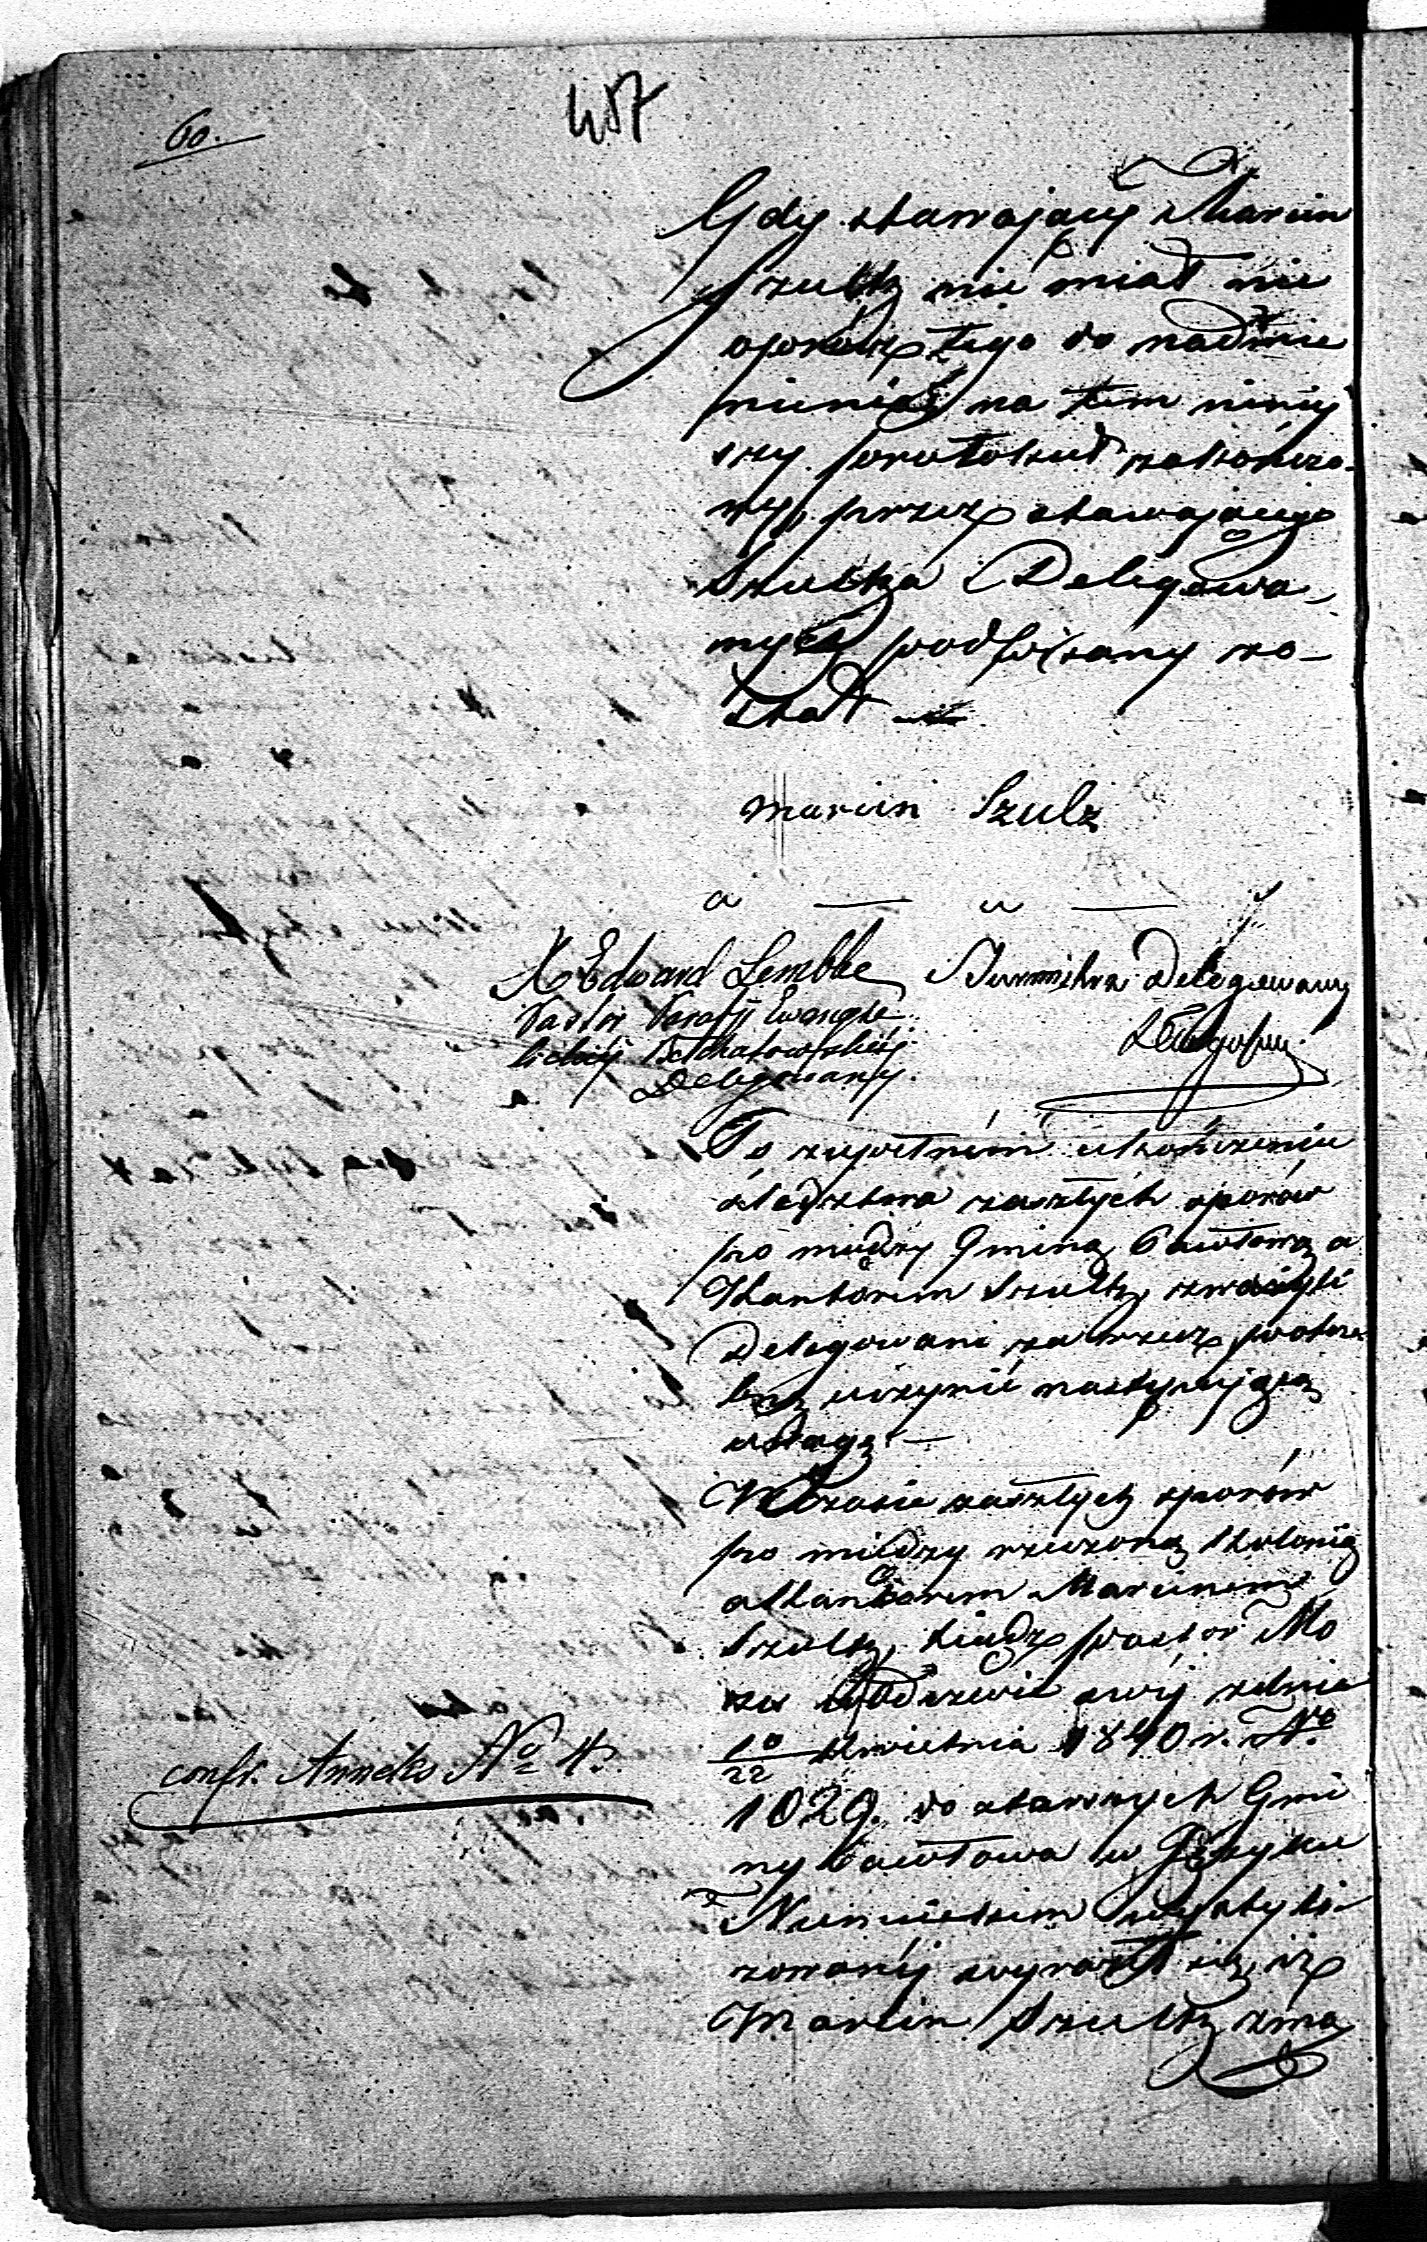 60.
487
Gdy stawający Marcin
Szultz nie miał nic
oprócz tego do nadmie
nienia, na tem niniej
szy protokuł zakończo-
ny, przez stawającego
Szultza i Delegowa-
nych podpisany zo-
stał
Marcin Szulz
a — u — s
X Edward Lembke
Pastor Parafii Ewangie
lickiej Bełchatowskiej
Delegowany.
Burmistrz Delegowany
Po zupełnem ukończeniu
śledztwa zaszłych sporów
po między Gminą Pawłową a
Kantorem Szultz, zważyli
Delegowani za rzecz potrze
bną uczynić następującą
uwagę —
W Czasie zaszłych sporów
po między rzeczoną Kolonią
a Kantorem Marcinem
Szultz, Xiądz pastor Mo
zes w Odezwie swej z dnia
10/22 Kwietnia 1840 r. No
1029. do starszych Gmi
ny Pawłowa w Języku
Niemieckim wystyli-
zowanej wyraził się, iż
Marcin Szultz zma
confr. Anneks No 4.